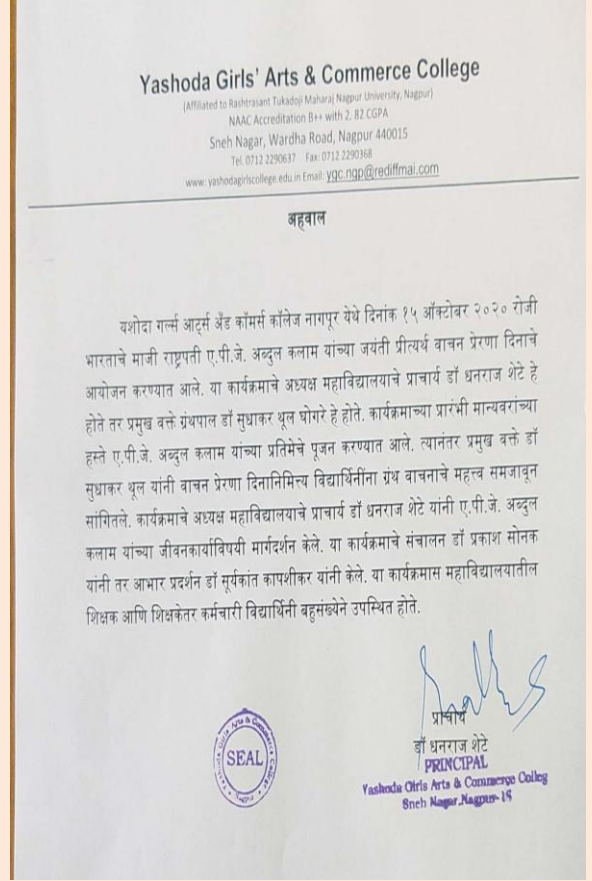 Yashoda Girls' Arts & Commerce College
(Affiliated to Rashtrasant Tukadoji Maharaj Nagpur University, Nagpur)
NAAC Accreditation B++ with 2. 82 CGPA
Sneh Nagar, Wardha Road, Nagpur 440015
Tel. 0712 2290637 Fax: 0712 2290368
www: yashodagirlscollege.edu.in Email: ygc.ngp@rediffmai.com
अहवाल
यशोदा गर्ल्स आर्ट्स अँड कॉमर्स कॉलेज नागपूर येथे दिनांक १५ ऑक्टोबर २०२० रोजी
भारताचे माजी राष्ट्रपती ए.पी.जे. अब्दुल कलाम यांच्या जयंती प्रीत्यर्थ वाचन प्रेरणा दिनाचे
आयोजन करण्यात आले. या कार्यक्रमाचे अध्यक्ष महाविद्यालयाचे प्राचार्य डॉ धनराज शेटे हे
होते तर प्रमुख वक्ते ग्रंथपाल डॉ सुधाकर थूल घोगरे हे होते. कार्यक्रमाच्या प्रारंभी मान्यवरांच्या
हस्ते ए.पी.जे. अब्दुल कलाम यांच्या प्रतिमेचे पूजन करण्यात आले. त्यानंतर प्रमुख वक्ते डॉ
सुधाकर थूल यांनी वाचन प्रेरणा दिनानिमित्त्य विद्यार्थिनींना ग्रंथ वाचनाचे महत्त्व समजावून
सांगितले. कार्यक्रमाचे अध्यक्ष महाविद्यालयाचे प्राचार्य डॉ धनराज शेटे यांनी ए.पी.जे. अब्दुल
कलाम यांच्या जीवनकार्याविषयी मार्गदर्शन केले. या कार्यक्रमाचे संचालन डॉ प्रकाश सोनक
यांनी तर आभार प्रदर्शन डॉ सूर्यकांत कापशीकर यांनी केले. या कार्यक्रमास महाविद्यालयातील
शिक्षक आणि शिक्षकेतर कर्मचारी विद्यार्थिनी बहुसंख्येने उपस्थित होते.
प्राचार्य
डॉ धनराज शेटे
PRINCIPAL
Yashoda Girls Arts & Commerce Colleg
Sneh Nagar, Nagpur-15
Yashoda Girls Arts & Commerce College
SEAL